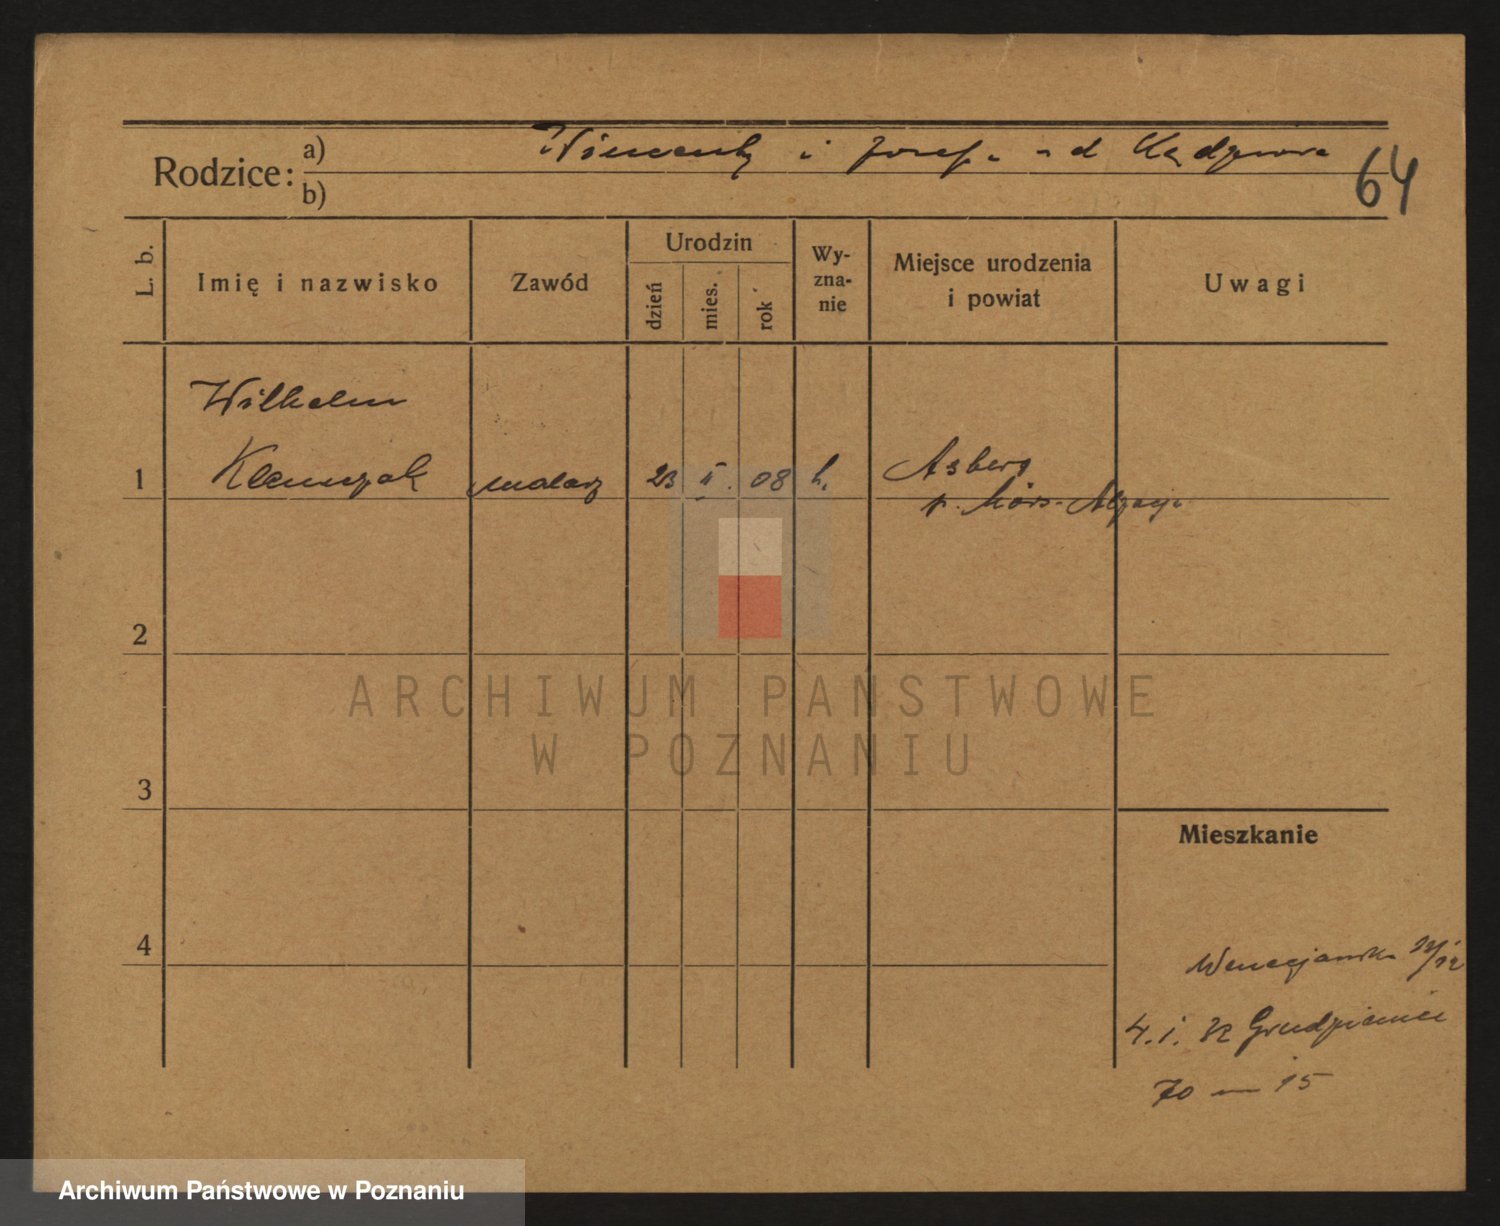 Rodzice:
a) Wincenty i Józefa z d.
b)
64
L. b.
Imię i nazwisko
Zawód
Urodzin
dzień
mies.
rok
Wy-
zna-
nie
Miejsce urodzenia
i powiat
Uwagi
Wilhelm
1 malarz 23 II. 08 k. Asberg
p. Mörs-Alzacja
2
3
Mieszkanie
4
Wenecjańska
4. I. 32 Grudzieniec
70 m 15
ARCHIWUM PAŃSTWOWE
W POZNANIU
Archiwum Państwowe w Poznaniu